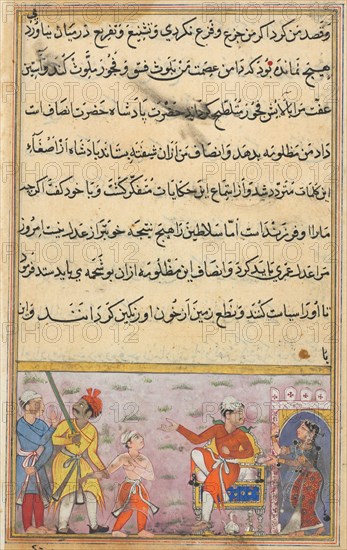 وقصد من کرد اکر من جزع و فزع نکردی و تشنیع و تفریع در میان نیاورد
هیچ نمانده بود که دامن عصمت من بلوث فسق و فجور ملوث کند و آستین
عفت مرا بالایش فجور متلطخ کرداند حضرت پادشاه حضرت انصاف است
داد من مظلومه بدهد و انصاف من ازان شیفته بستاند پادشاه از اصغاء
این کلمات متردد شد و از استماع این حکایات متفکر کشت و با خود کفت اکرچه
مارا فرزند است اما سلاطین را هیچ نتیجه خوبتر از عدل نیست امروز
مرا عدل عمری باید کرد و انصاف این مظلومه ازان بوشحمه باید ستد فرمود
تا او را سیاست کنند و نطع زمین از خون او رنکین کردانند و این
با
PHOTO12